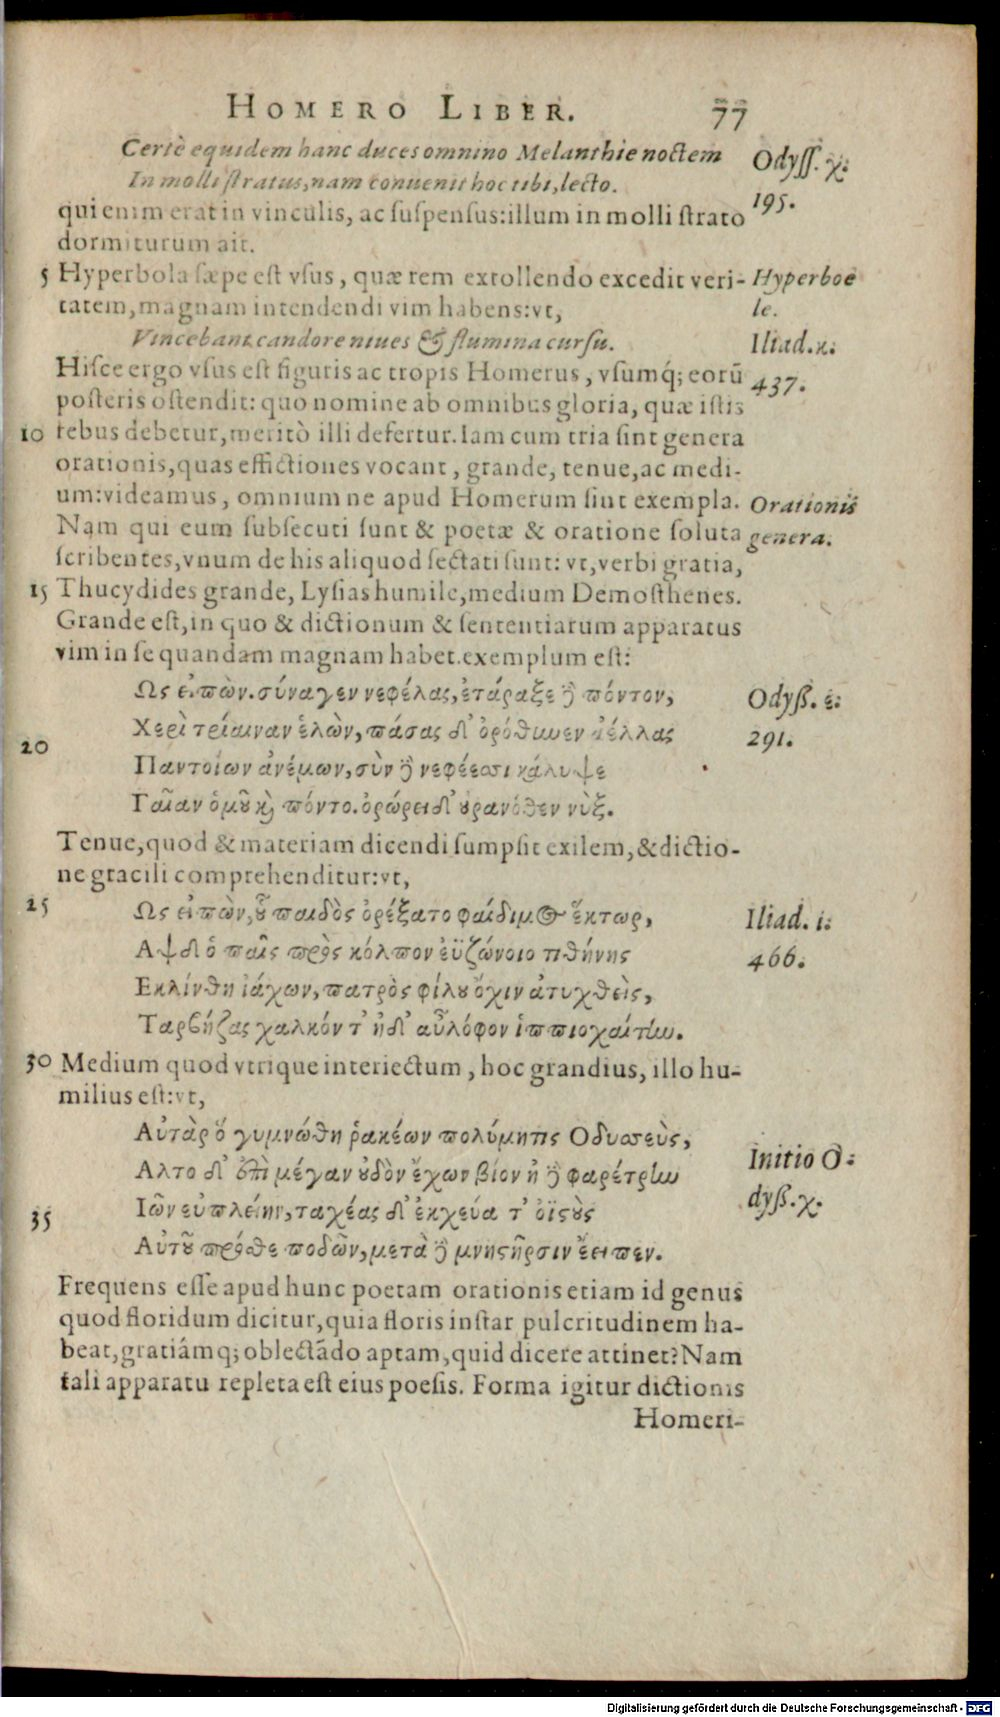 HOMERO LIBER. 77
Certè equidem hanc duces omnino Melanthie noctem
In molli stratus, nam conuenit hoc tibi, lecto.
Odyss. χ.
195.
qui enim erat in vinculis, ac suspensus: illum in molli strato
dormiturum ait.
5 Hyperbola sæpe est vsus, quæ rem extollendo excedit veri-
Hyperboe
tatem, magnam intendendi vim habens: vt,
le.
Vincebant candore niues & flumina cursu.
Iliad. κ.
Hisce ergo vsus est figuris ac tropis Homerus, vsumq́; eorū
437.
posteris ostendit: quo nomine ab omnibus gloria, quæ istis
10 rebus debetur, meritò illi defertur. Iam cum tria sint genera
orationis, quas effictiones vocant, grande, tenue, ac medi-
um: videamus, omnium ne apud Homerum sint exempla.
Orationis
Nam qui eum subsecuti sunt & poetæ & oratione soluta
genera.
scribentes, vnum de his aliquod sectati sunt: vt, verbi gratia,
15 Thucydides grande, Lysias humile, medium Demosthenes.
Grande est, in quo & dictionum & sententiarum apparatus
vim in se quandam magnam habet. exemplum est:
Ως εἰπὼν. σύναγεν νεφέλας, ἐτάραξε ἢ πόντον,
Odyß. ε.
Χερὶ τρίαιναν ἑλὼν, πάσας δ' ὀρόθυνεν ἀέλλας
291.
20
Παντοίων ἀνέμων, σὺν ἢ νεφέεσσι κάλυψε
Γαῖαν ὁμοῦ καὶ πόντο. ὀρώρει δ' οὐρανόθεν νὺξ.
Tenue, quod & materiam dicendi sumpsit exilem, & dictio-
ne gracili comprehenditur: vt,
25
Ως εἰπὼν, οὗ παιδὸς ὀρέξατο φαίδιμος ἕκτωρ,
Iliad. ι.
Αψ δ' ὁ παῖς πρὸς κόλπον ἐϋζώνοιο τιθήνης
466.
Εκλίνθη ἰάχων, πατρὸς φίλου ὄψιν ἀτυχθεὶς,
Ταρβήζας χαλκόν τ' ἠδ' αὖλόφον ἱππιοχαίτην.
30 Medium quod vtrique interiectum, hoc grandius, illo hu-
milius est: vt,
Αὐτὰρ ὁ γυμνώθη ῥακέων πολύμητις Οδυσσεὺς,
Initio O-
Αλτο δ' ἐπὶ μέγαν οὐδὸν ἔχων βίον ἠ ἢ φαρέτρην
dyß. χ.
35
Ιῶν εὐπλείην, ταχέας δ' ἐκχεύα τ' ὀϊστοὺς
Αὐτοῦ πρόσθε ποδῶν, μετὰ ἢ μνηστῆρσιν ἔειπεν.
Frequens esse apud hunc poetam orationis etiam id genus
quod floridum dicitur, quia floris instar pulcritudinem ha-
beat, gratiámq; oblectādo aptam, quid dicere attinet? Nam
tali apparatu repleta est eius poesis. Forma igitur dictionis
Homeri-
Digitalisierung gefördert durch die Deutsche Forschungsgemeinschaft - DFG